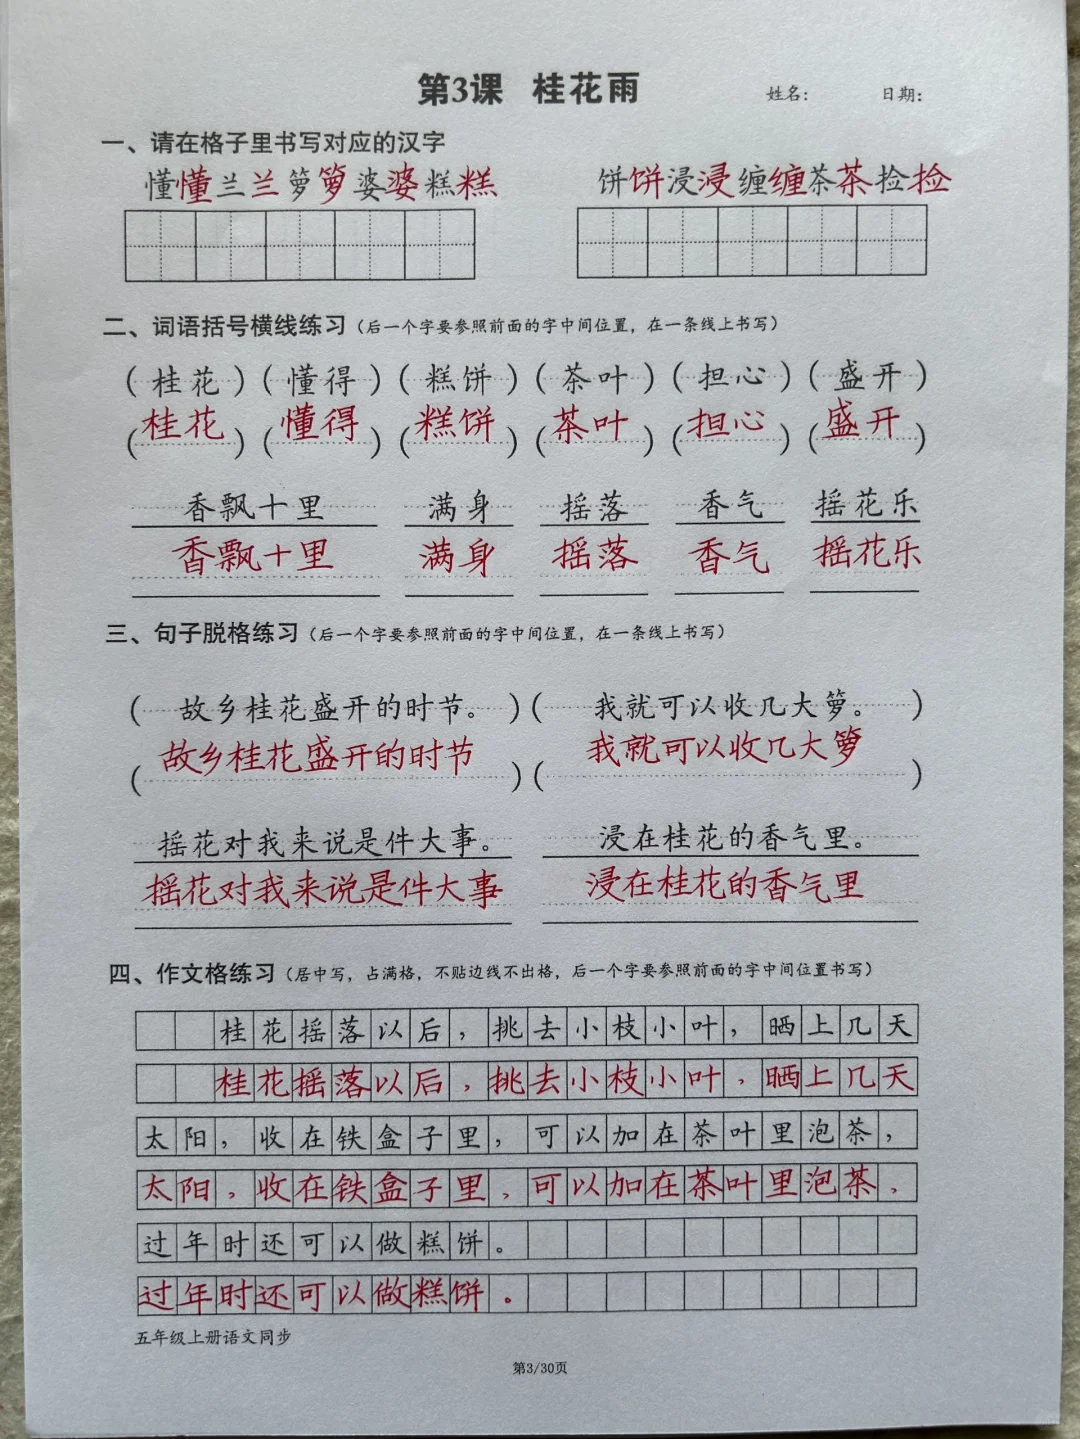 第3课 桂花雨 姓名: 日期:
一、请在格子里书写对应的汉字
懂懂兰兰箩箩婆婆糕糕 饼饼浸浸缠缠茶茶捡捡
二、词语括号横线练习(后一个字要参照前面的字中间位置，在一条线上书写)
(桂花)(懂得)(糕饼)(茶叶)(担心)(盛开)
(桂花)(懂得)(糕饼)(茶叶)(担心)(盛开)
香飘十里 满身 摇落 香气 摇花乐
香飘十里 满身 摇落 香气 摇花乐
三、句子脱格练习(后一个字要参照前面的字中间位置，在一条线上书写)
(故乡桂花盛开的时节。)(我就可以收几大箩。)
(故乡桂花盛开的时节)(我就可以收几大箩)
摇花对我来说是件大事。 浸在桂花的香气里。
摇花对我来说是件大事 浸在桂花的香气里
四、作文格练习(居中写，占满格，不贴边线不出格，后一个字要参照前面的字中间位置书写)
桂花摇落以后，挑去小枝小叶，晒上几天
桂花摇落以后，挑去小枝小叶，晒上几天
太阳，收在铁盒子里，可以加在茶叶里泡茶，
太阳，收在铁盒子里，可以加在茶叶里泡茶，
过年时还可以做糕饼。
过年时还可以做糕饼。
五年级上册语文同步
第3/30页